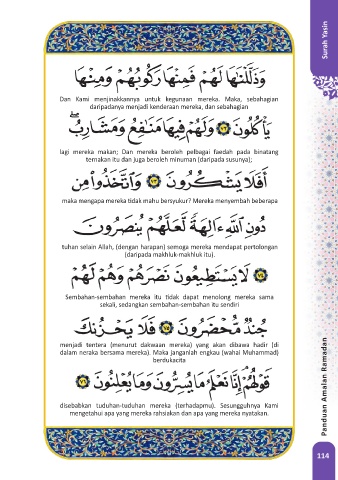 Surah Yasin
وَذَلَّلْنَٰهَا لَهُمْ فَمِنْهَا رَكُوبُهُمْ وَمِنْهَا
Dan Kami menjinakkannya untuk kegunaan mereka. Maka, sebahagian
daripadanya menjadi kenderaan mereka, dan sebahagian
يَأْكُلُونَ ٧٢ وَلَهُمْ فِيهَا مَنَٰفِعُ وَمَشَارِبُ ۖ
lagi mereka makan; Dan mereka beroleh pelbagai faedah pada binatang
ternakan itu dan juga beroleh minuman (daripada susunya);
أَفَلَا يَشْكُرُونَ ٧٣ وَٱتَّخَذُوا۟ مِن
maka mengapa mereka tidak mahu bersyukur? Mereka menyembah beberapa
دُونِ ٱللَّهِ ءَالِهَةً لَّعَلَّهُمْ يُنصَرُونَ
tuhan selain Allah, (dengan harapan) semoga mereka mendapat pertolongan
(daripada makhluk-makhluk itu).
٧٤ لَا يَسْتَطِيعُونَ نَصْرَهُمْ وَهُمْ لَهُمْ
Sembahan-sembahan mereka itu tidak dapat menolong mereka sama
sekali, sedangkan sembahan-sembahan itu sendiri
جُندٌ مُّحْضَرُونَ ٧٥ فَلَا يَحْزُنكَ
menjadi tentera (menurut dakwaan mereka) yang akan dibawa hadir (di
dalam neraka bersama mereka). Maka janganlah engkau (wahai Muhammad)
berdukacita
قَوْلُهُمْ ۘ إِنَّا نَعْلَمُ مَا يُسِرُّونَ وَمَا يُعْلِنُونَ ٧٦
disebabkan tuduhan-tuduhan mereka (terhadapmu). Sesungguhnya Kami
mengetahui apa yang mereka rahsiakan dan apa yang mereka nyatakan.
Panduan Amalan Ramadan
114